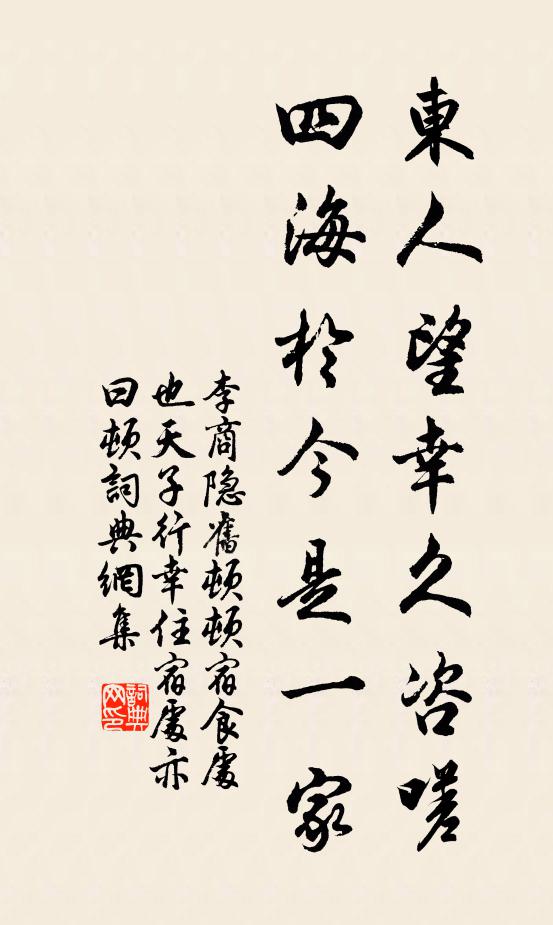 東人望幸久咨嗟
四海於今是一家
李商隐舊頓頓宿食處
也天子行幸住宿處亦
曰頓詞典網集
詞典网印